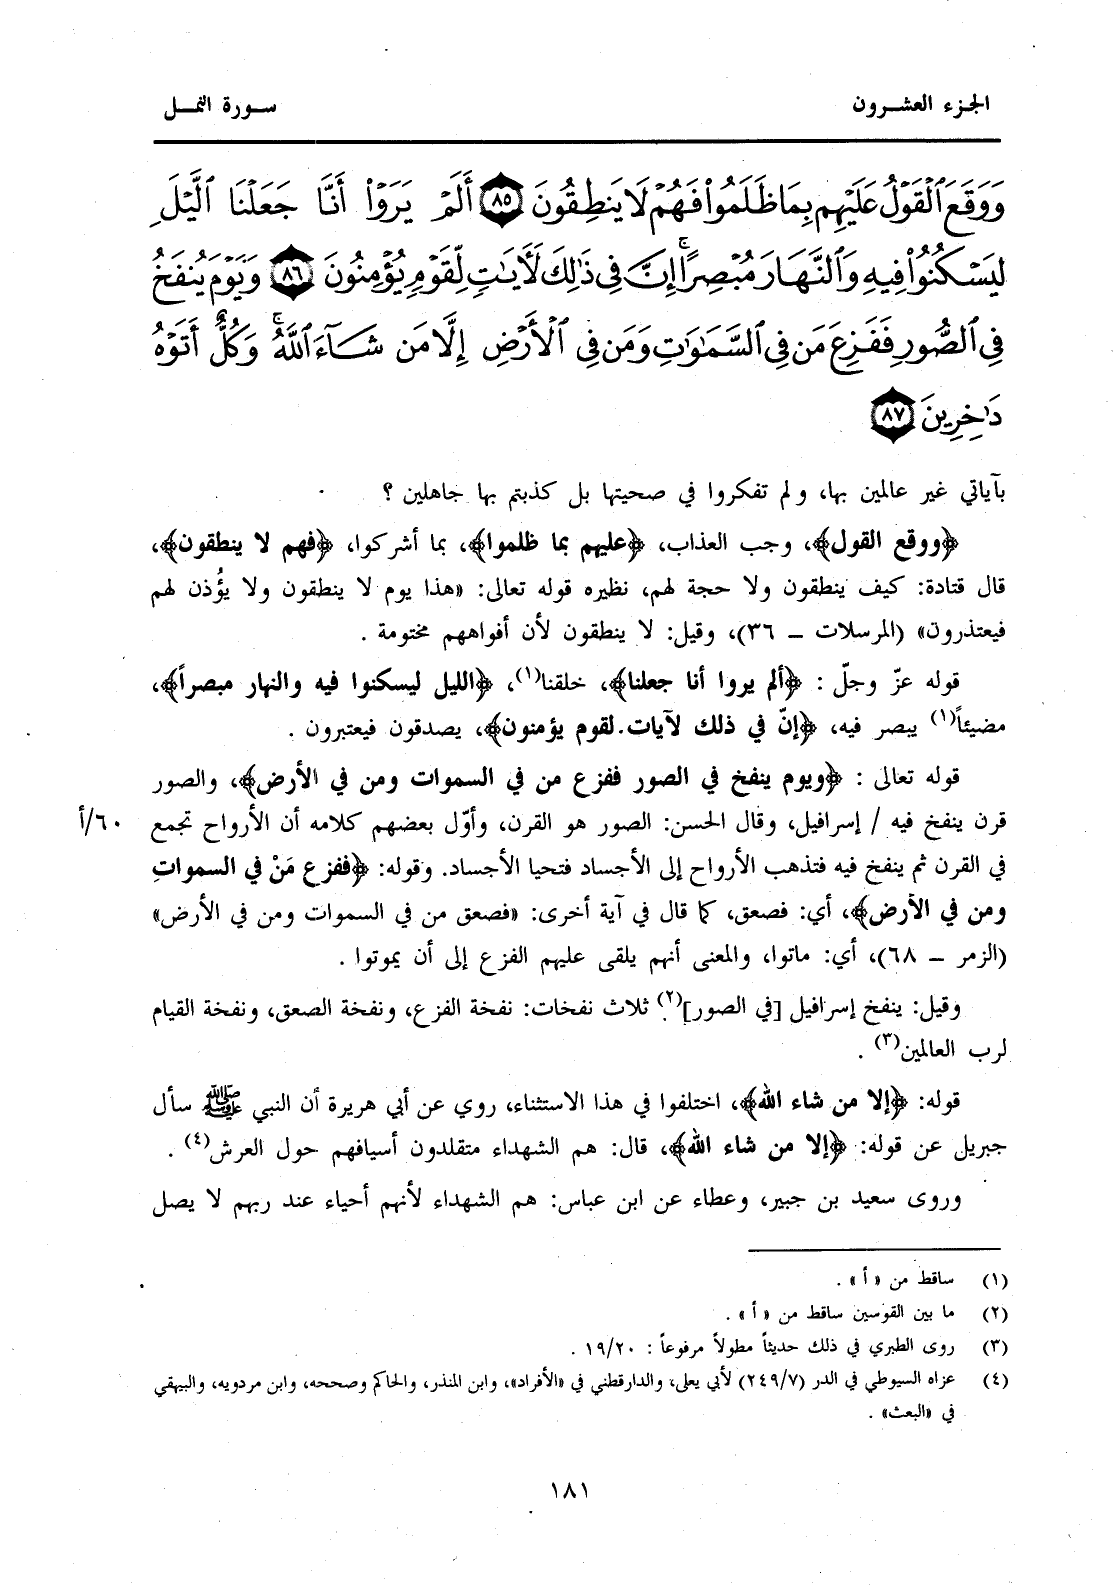 الجزء العشرون
سورة النمل
وَوَقَعَ ٱلْقَوْلُ عَلَيْهِم بِمَا ظَلَمُوا۟ فَهُمْ لَا يَنطِقُونَ ٨٥ أَلَمْ يَرَوْا۟ أَنَّا جَعَلْنَا ٱلَّيْلَ
لِيَسْكُنُوا۟ فِيهِ وَٱلنَّهَارَ مُبْصِرًا ۚ إِنَّ فِى ذَٰلِكَ لَـَٔايَٰتٍ لِّقَوْمٍ يُؤْمِنُونَ ٨٦ وَيَوْمَ يُنفَخُ
فِى ٱلصُّورِ فَفَزِعَ مَن فِى ٱلسَّمَٰوَٰتِ وَمَن فِى ٱلْأَرْضِ إِلَّا مَن شَآءَ ٱللَّهُ ۚ وَكُلٌّ أَتَوْهُ
دَٰخِرِينَ ٨٧
بآياتي غير عالمين بها، ولم تفكروا في صحيتها بل كذبتم بها جاهلين ؟
﴿ووقع القول﴾، وجب العذاب، ﴿عليهم بما ظلموا﴾، بما أشركوا، ﴿فهم لا ينطقون﴾،
قال قتادة: كيف ينطقون ولا حجة لهم، نظيره قوله تعالى: «هذا يوم لا ينطقون ولا يؤُذن لهم
فيعتذرون» (المرسلات – ٣٦)، وقيل: لا ينطقون لأن أفواههم مختومة .
قوله عزّ وجلّ : ﴿ألم يروا أنا جعلنا﴾، خلقنا(١)، ﴿الليل ليسكنوا فيه والنهار مبصراً﴾،
مضيئاً(١) يبصر فيه، ﴿إنّ في ذلك لآيات لقوم يؤمنون﴾، يصدقون فيعتبرون .
قوله تعالى : ﴿ويوم ينفخ في الصور ففزع من في السموات ومن في الأرض﴾، والصور
قرن ينفخ فيه / إسرافيل، وقال الحسن: الصور هو القرن، وأوّل بعضهم كلامه أن الأرواح تجمع ٦٠/أ
في القرن ثم ينفخ فيه فتذهب الأرواح إلى الأجساد فتحيا الأجساد. وقوله: ﴿ففزع مَنْ في السمواتِ
ومن في الأرض﴾، أي: فصعق، كما قال في آية أخرى: «فصعق من في السموات ومن في الأرض»
(الزمر – ٦٨)، أي: ماتوا، والمعنى أنهم يلقى عليهم الفزع إلى أن يموتوا .
وقيل: ينفخ إسرافيل [في الصور](٢) ثلاث نفخات: نفخة الفزع، ونفخة الصعق، ونفخة القيام
لرب العالمين(٣) .
قوله: ﴿إلا من شاء الله﴾، اختلفوا في هذا الاستثناء، روي عن أبي هريرة أن النبي ﷺ سأل
جبريل عن قوله: ﴿إلا من شاء الله﴾، قال: هم الشهداء متقلدون أسيافهم حول العرش(٤) .
وروى سعيد بن جبير، وعطاء عن ابن عباس: هم الشهداء لأنهم أحياء عند ربهم لا يصل
(١) ساقط من « أ » .
(٢) ما بين القوسين ساقط من « أ » .
(٣) روى الطبري في ذلك حديثاً مطولاً مرفوعاً : ١٩/٢٠ .
(٤) عزاه السيوطي في الدر (٢٤٩/٧) لأبي يعلى، والدارقطني في «الأفراد»، وابن المنذر، والحاكم وصححه، وابن مردويه، والبيهقي
في «البعث» .
١٨١